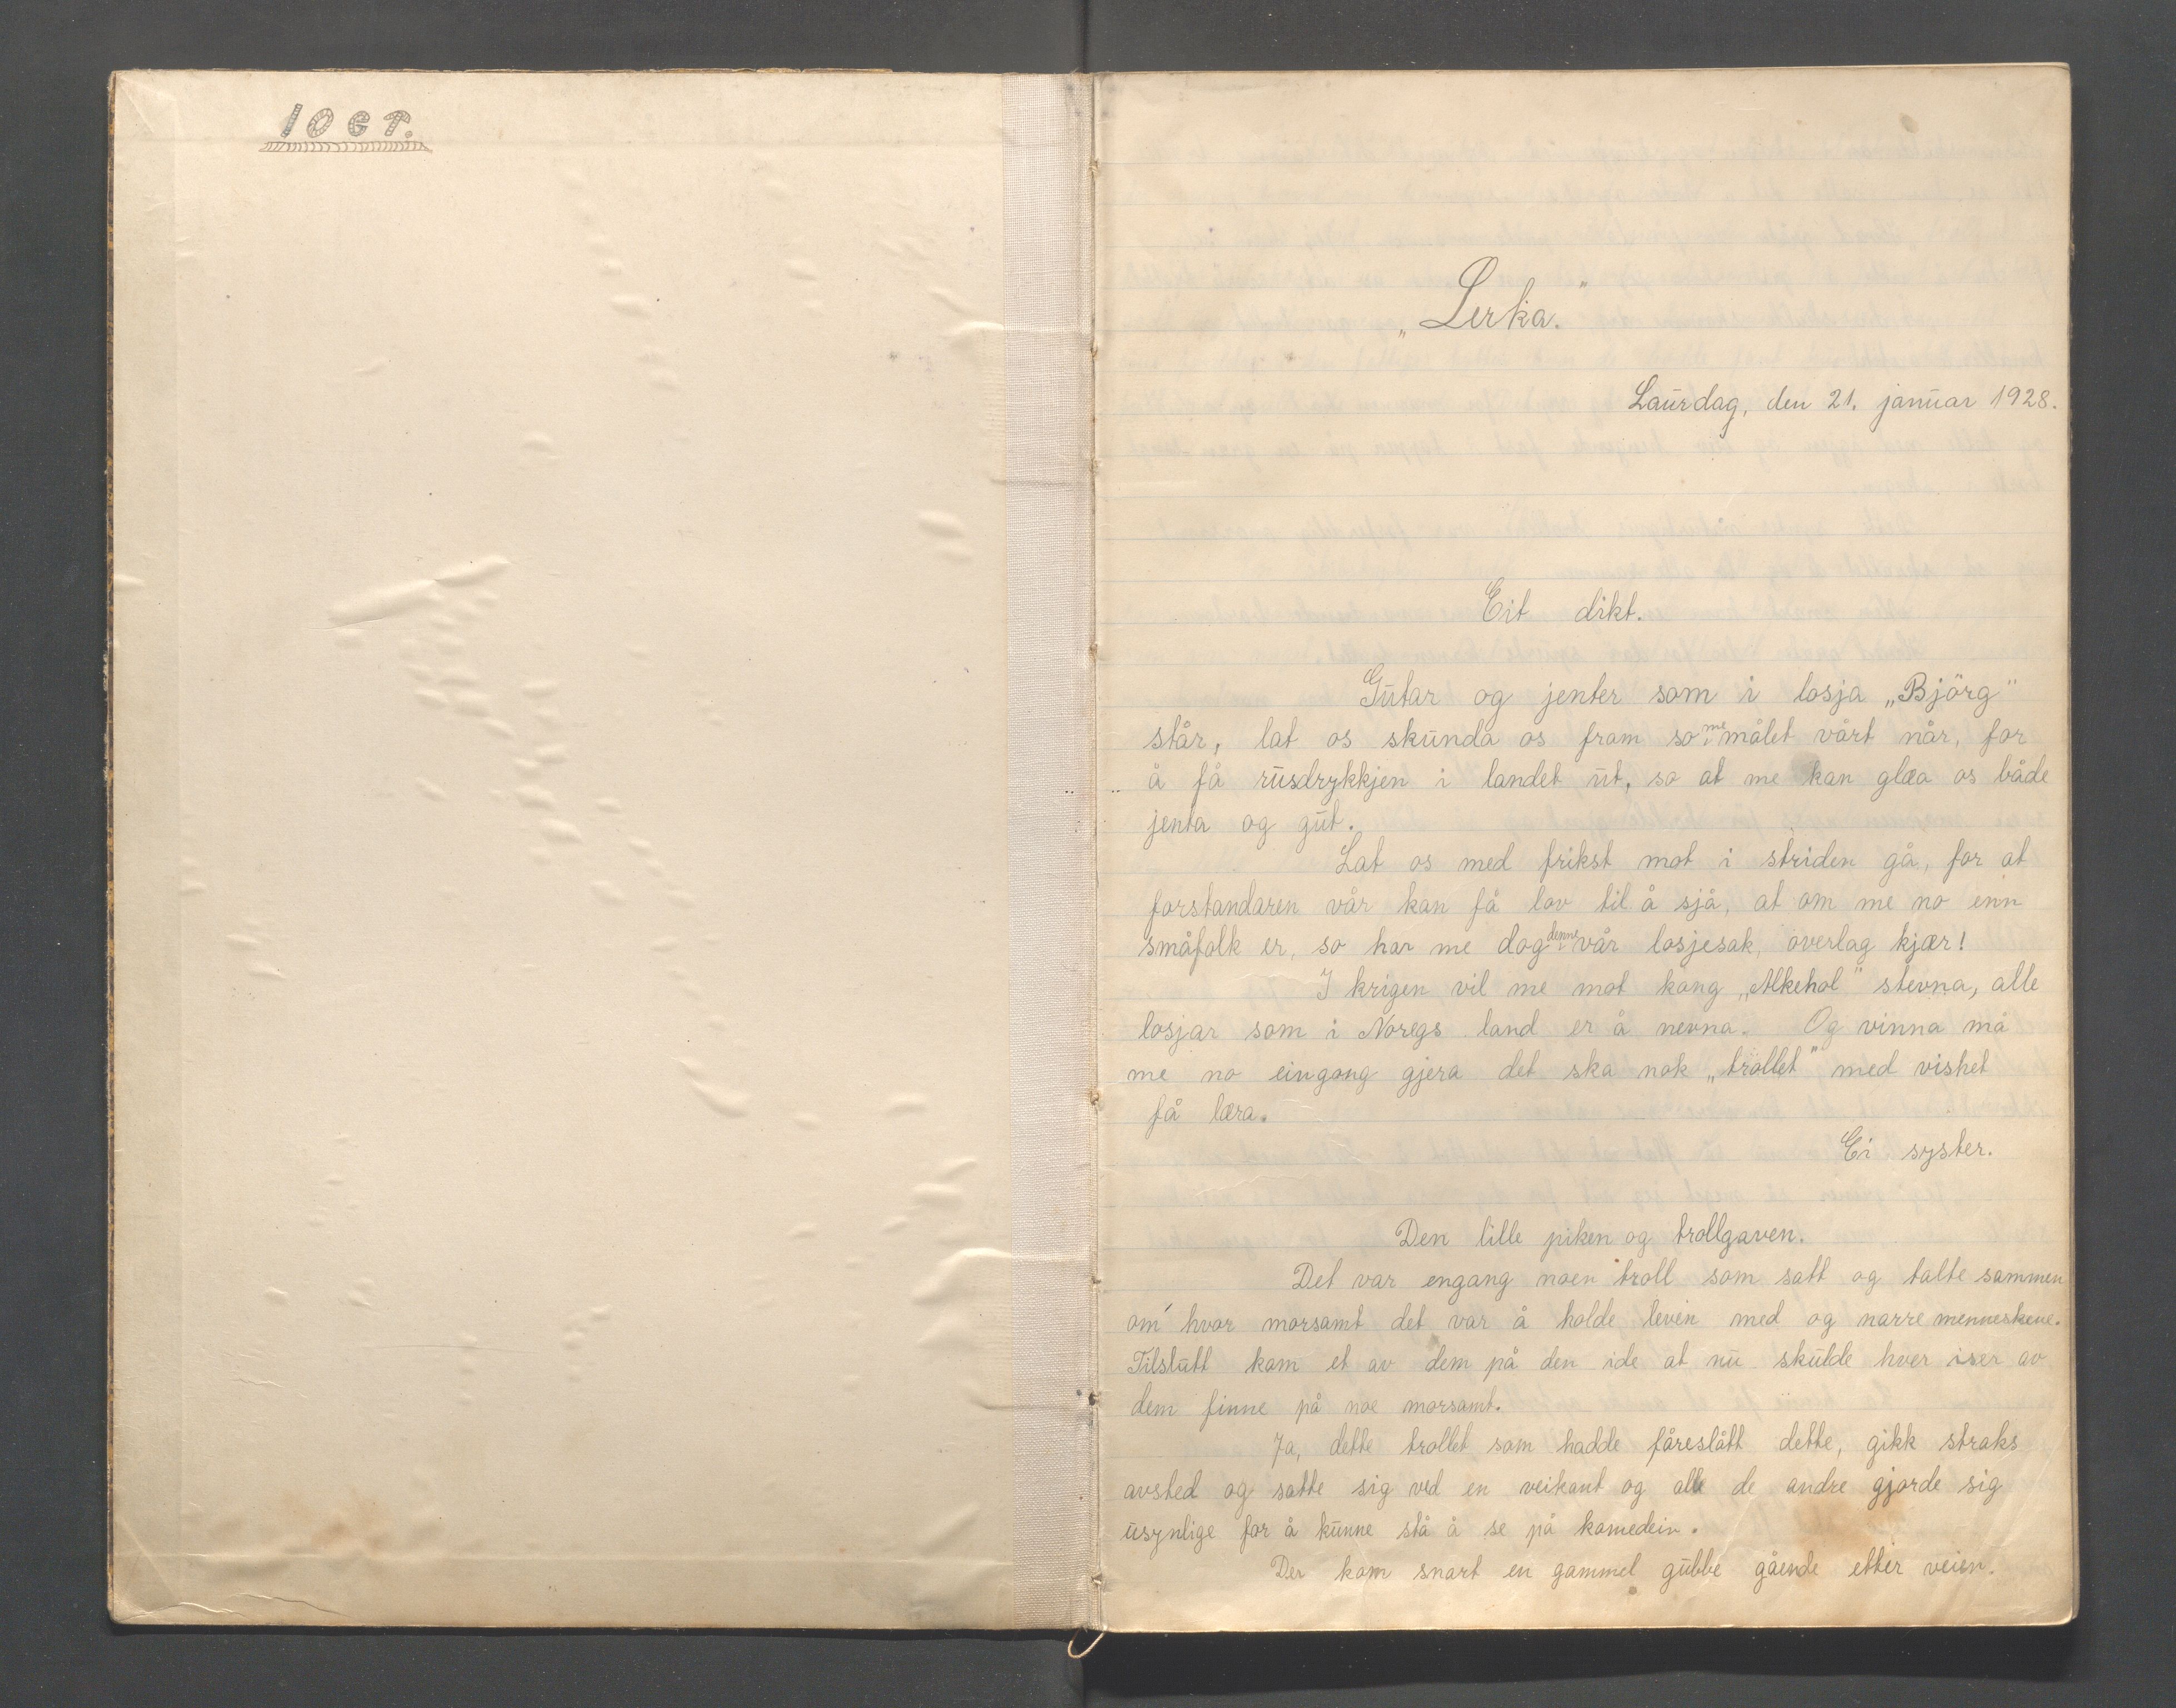 10 GT.
„Lerka."
Laurdag, den 21. januar 1928.
Eit dikt.
Gutar og jenter som i losja „Björg"
står, lat os skunda os fram so me målet vårt når, for
å få rusdrykkjen i landet ut, so at me kan glæa os både
jenta og gut.
Lat os med frikst mot i striden gå, for at
forstandaren vår kan få lov til å sjå, at om me no enn
småfolk er, so har me dog denne vår losjesak, overlag kjær!
I krigen vil me mot kong „Alkehol" stevna, alle
losjar som i Noregs land er å nevna. Og vinna må
me no eingong gjera det ska nok „trollet" med vishet
få læra.
Ei syster.
Den lille piken og trollgaven.
Det var engang noen troll som satt og talte sammen
om hvor morsomt det var å holde leven med og narre menneskene.
Tilslutt kom et av dem på den ide at nu skulde hver især av
dem finne på noe morsomt.
Ja, dette trollet som hadde føreslått dette, gikk straks
avsted og satte sig ved en veikant og alle de andre gjorde sig
usynlige for å kunne stå å se på komedein.
Der kom snart en gammel gubbe gående etter veien.